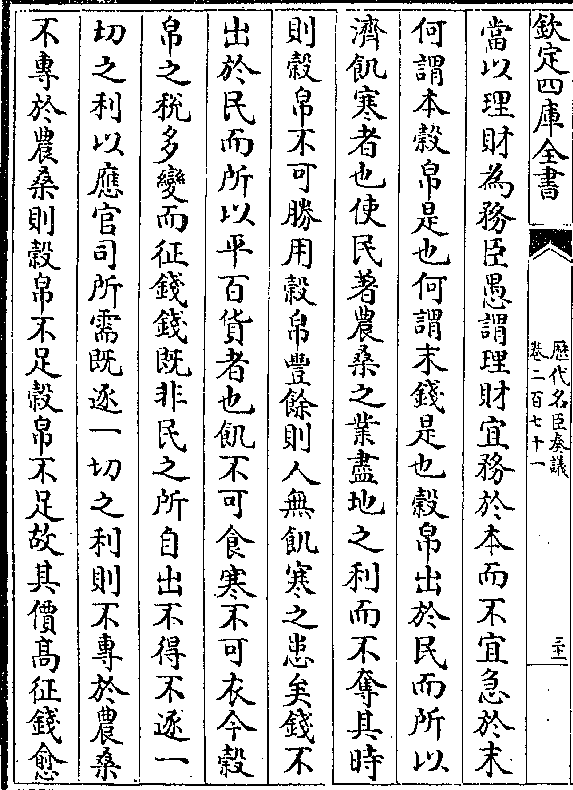 欽定四庫全書
歴代名臣奏議
卷二百七十一
三十一
當以理財為務臣愚謂理財宜務於本而不宜急於末
何謂本榖帛是也何謂末錢是也榖帛出於民而所以
濟飢寒者也使民著農桑之業盡地之利而不奪其時
則榖帛不可勝用榖帛豐餘則人無飢寒之患矣錢不
出於民而所以平百貨者也飢不可食寒不可衣今榖
帛之稅多變而征錢錢既非民之所自出不得不逐一
切之利以應官司所需既逐一切之利則不專於農桑
不專於農桑則榖帛不足榖帛不足故其價髙征錢愈